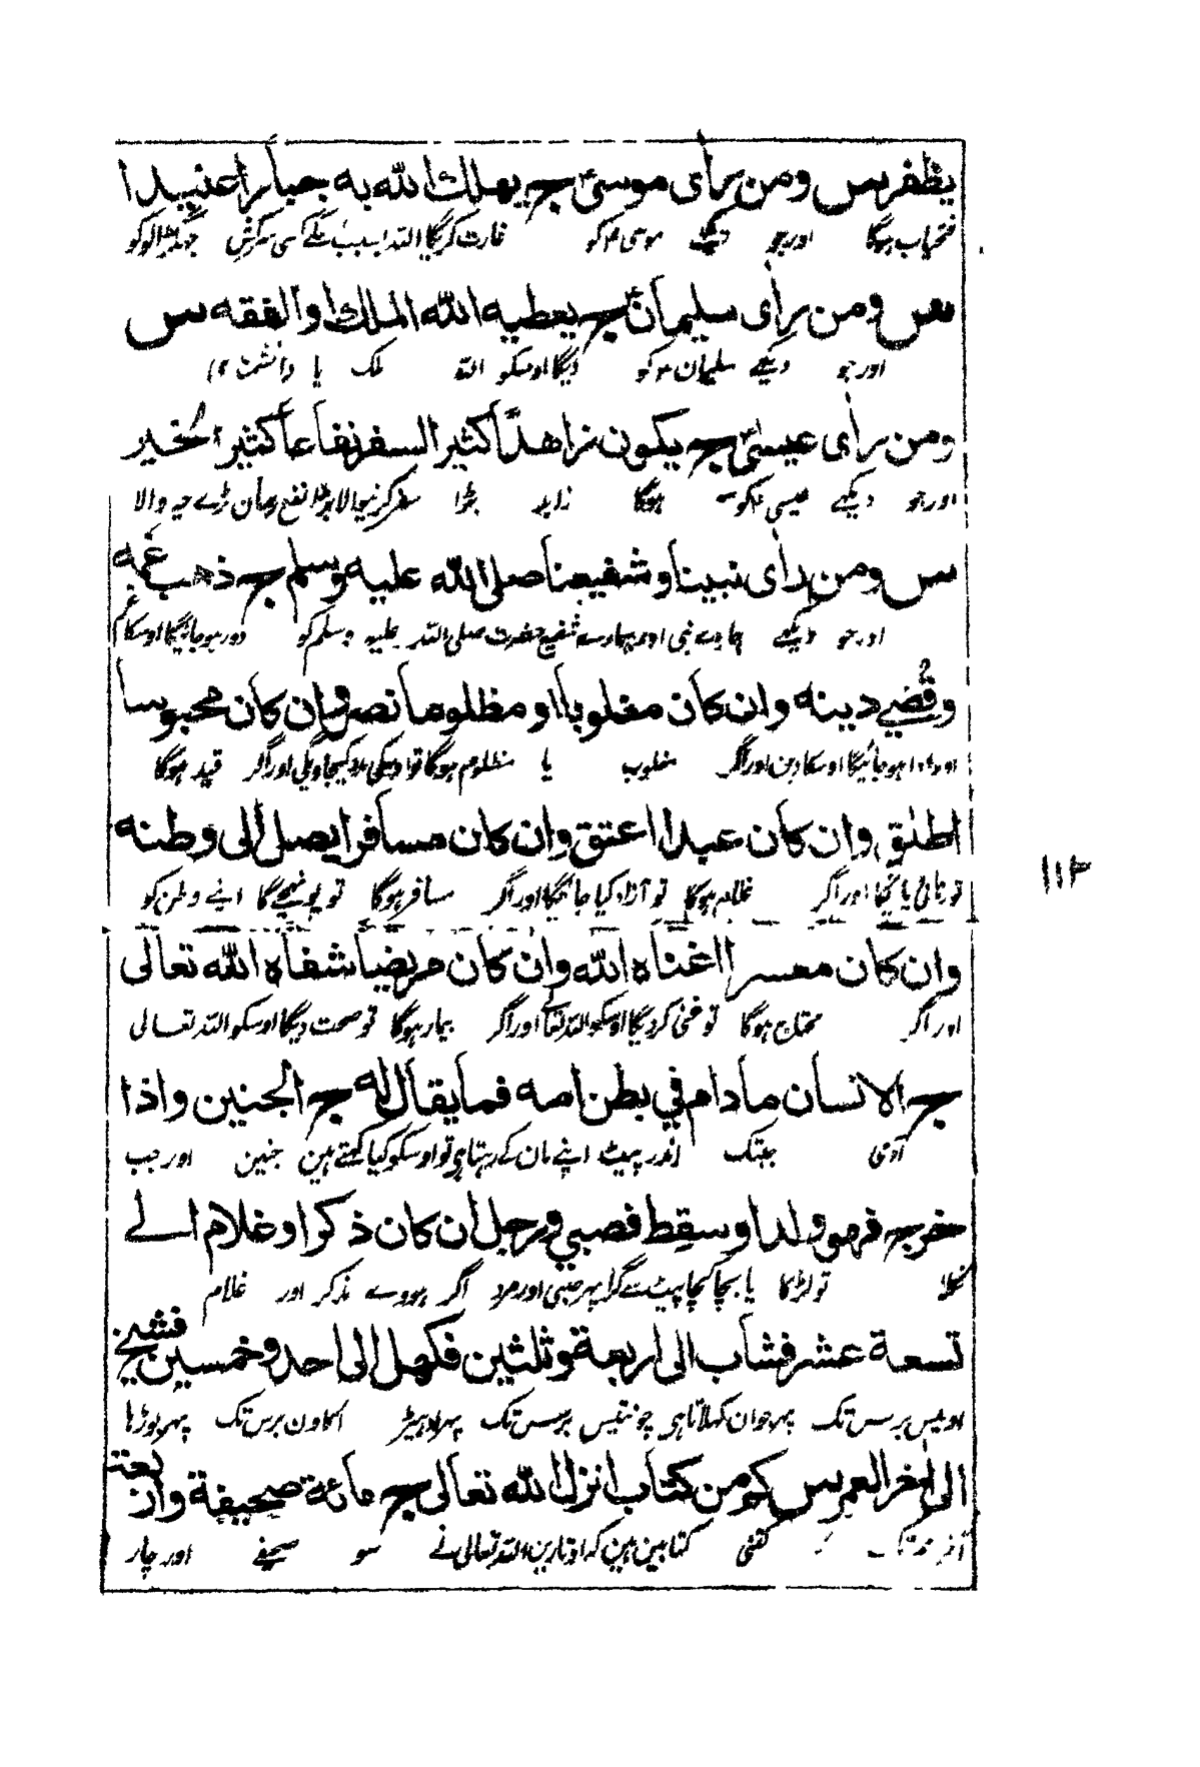 يظفر س ومن رأى موسىٰ ج يهلك الله به جبارا عنيدا
فتحیاب ہوگا اور جو دیکھے موسی ؑ کو غارت کریگا اللہ بسبب اسکے کسی سرکش
س ومن رأى سليمانؑ ج يعطيه الله الملك او الفقه س
اور جو دیکھے سلیمان ؑ کو دیگا اوسکو اللہ ملک یا دانشمندی
ومن رأى عيسىٰؑ ج يكون زاهدًا كثير السفر نفاعا كثير الخير
اور جو دیکھے عیسیٰ کو ہوگا زاہد بڑا سفر کرنیوالا بڑا نفع رسان بڑے والا
س ومن رأى نبينا و شفيعنا صلى الله عليه وسلم ج ذهب غمه
اور جو دیکھے ہمارے نبی اور ہمارے شفیع حضرت صلی اللہ علیہ وسلم کو دور ہو جائیگا اوسکا غم
وقُضي دينه وان كان مغلوبا او مظلوما نصر وان كان محبوسا
اور ادا ہو جائیگا اوسکا دین اور اگر مغلوب یا مظلوم ہوگا تو اوسکی مدد کیجاویگی اور اگر قید ہوگا
اطلق وان كان عبدا اعتق وان كان مسافرا يصل الى وطنه
تو رہائی پائیگا اور اگر غلام ہوگا تو آزاد کیا جائیگا اور اگر مسافر ہوگا تو پونہچے گا اپنے وطن کو
۱۱۲
وان كان معسرا اغناه الله وان كان مريضا شفاه الله تعالى
اور اگر محتاج ہوگا تو غنی کر دیگا اوسکو اللہ تعالے اور اگر بیمار ہوگا تو صحت دیگا اوسکو اللہ تعالی
ج الانسان مادام في بطن امه فما يقال له ج الجنين واذا
آدمی جبتک اندر پیٹ اپنے مان کے رہتا ہی تو اوسکو کیا کہتے ہین جنین اور جب
خرج فهو ولد او سقط فصبي ورجل ان كان ذكرا وغلام الے
نکلا تو لڑکا یا بچا کچا پیٹ سے گرا پھر صبی اور مرد اگر ہووے مذکر اور غلام
تسعة عشر فشاب الى اربعة وثلثين فكهل الى احد وخمسين فشيخ
اونیس برس تک پھر جوان کہلاتا ہی چونتیس برس تک پھر ادھیڑ اکاون برس تک پھر بوڑھا
الى اٰخر العمر س كم من كتاب انزل الله تعالى ج مائة صحيفة واربعة
آخر عمر تک کتنی کتابین ہین کہ اوتارین اللہ تعالی نے سو صحیفے اور چار